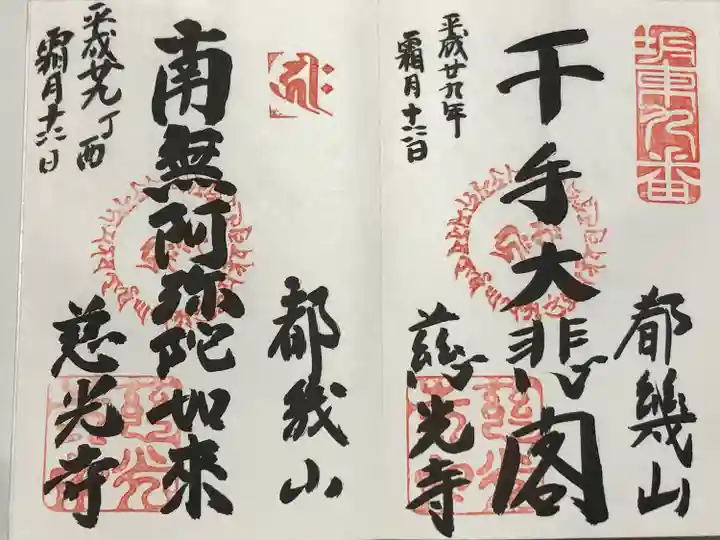 坂東九番
都幾山
千手大悲閣
慈光寺
平成廿九年
霜月十六日
都幾山
南無阿弥陀如来
慈光寺
平成廿九丁酉
霜月十六日